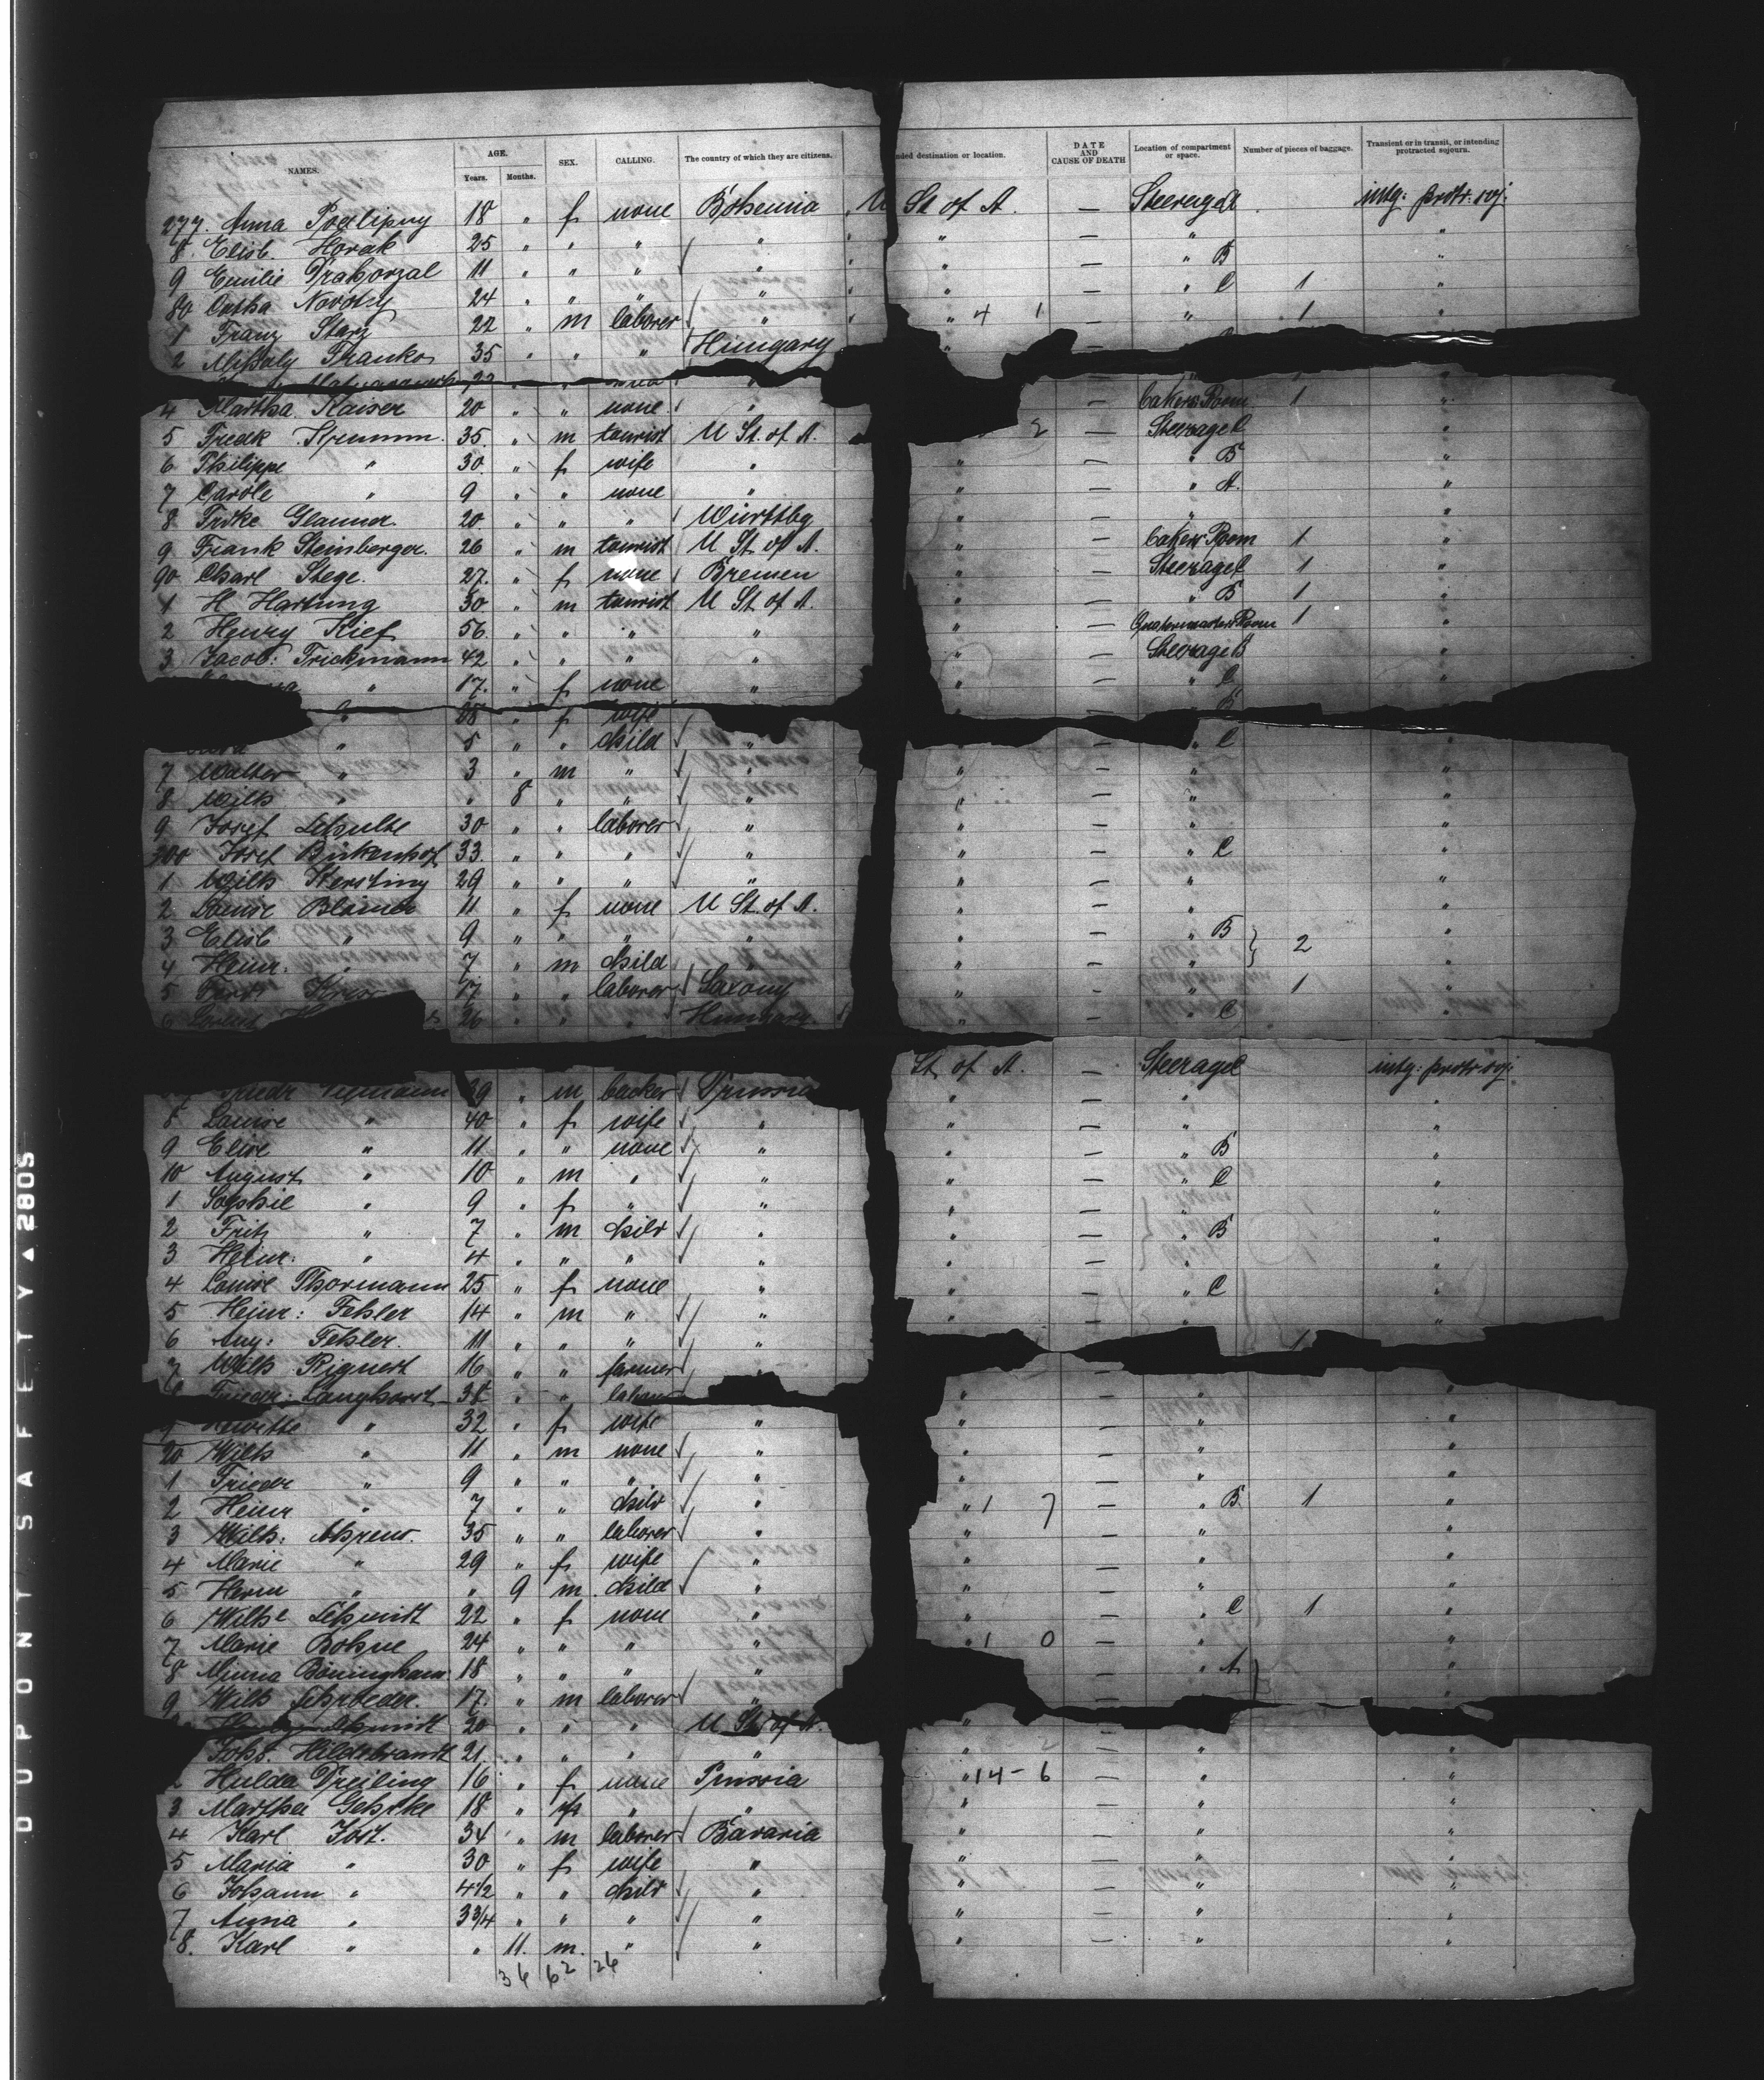 NAMES. AGE. Years. Months. SEX. CALLING. The country of which they are citizens. nded destination or location. DATE AND CAUSE OF DEATH Location of compartment or space. Number of pieces of baggage. Transient or in transit, or intending protracted sojourn.
277. Anna Podlipny 18 " f none Bohemia U St of A. — Steerage intg: protr. soj.
8. Elisb. Horak 25 " " " " " — " "
9 Emilie 11 " " " " " — " B "
80 Catha Novotny 24 " " " " " — " C 1 "
1 Franz Starz 22 " m laborer " " 4 1 — " 1 "
2 Mihaly Franko 35 " " " Hungary
4 Martha Kaiser 20 " " none " — Room 1 "
5 Fredk 35. " m tourist U St. of A. 2 — Steerage C "
6 Philippe " 30. " f wife " " — " B "
7 Carole " 9 " " none " " — " A. "
8 Frdke Glauner. 20. " " " Württbg " — " "
9 Frank Steinberger. 26 " m tourist U St. of A. " — Room 1 "
90 Charl Stege. 27. " f none Bremen " — Steerage C 1 "
1 H Hartung 30 " m tourist U St. of A. " — " B 1 "
2 Henry Kief 56. " " " " " — Quatermaster Room 1 "
3 Jacob: Frickmann 42 " " " " " — Steerage B "
" 17. " f none " " — " C "
" 28 " f wife
" 5 " " child " — " C "
7 Walter " 3 " m " " " — " "
8 Wilh " " 8 " " " " — " "
9 Josef Schulte 30 " " laborer " " — " "
300 Josef Birkenhof 33. " " " " " — " C "
1 Wilh Kersting 29 " " " " " — " "
2 Louise 11 " f none U St. of A. " — " "
3 Elisb " 9 " " " " " — " B 2 "
4 Heinr. " 7 " m child " " — " "
5 17 " " laborer Saxony " — " 1 "
6 26 " " " Hungary. — " C "
St of A. — Steerage intg: protr soj.
39 " m backer Prussia " — " "
8 Louise " 40 " f wife " " — " "
9 Elise " 11 " " none " " — " B "
10 August " 10 " m " " " — " C "
1 Sophie " 9 " f " " " — " "
2 Fritz " 7 " m child " " — " B "
3 Heinr: " 4 " " " " " — " "
4 Louise Thormann 25 " f none " " — " C "
5 Heinr: Fehler 14 " m " " " — " "
6 Aug: Fehler. 11 " " " " 1
7 Wilh Rignert 16 " " farmer "
8 Frieder: Langhorst 38 " " laborer " — " "
9 " 32 " f wife " " — " "
20 Wilh " 11 " m none " " — " "
1 Frieder " 9 " " " " " — " "
2 Heinr " 7 " " child " " 1 7 — " B 1 "
3 Wilh: Ahrens. 35 " " laborer " " — " "
4 Marie " 29 " f wife " " — " "
5 Herm " " 9 m child " " — " "
6 Wilhe Schmidt 22 " f none " " — " C 1 "
7 Marie Bohne 24 " " " " " 1 0 — " "
8 Minna 18 " " " " — " A "
9 Wilh Schroeder. 17. " m laborer " — " "
Schmidt 20 " " " U St. of A. " — " "
Johs. Hildebrandt 21. " " " " " — " "
2 Hulda Dreiling 16 " f none Prussia " 14 - 6 — " "
3 Martha Gehrke 18 " f " " " — " "
4 Karl Jost. 34 " m laborer Bavaria " — " "
5 Maria " 30 " f wife " " — " "
6 Johann " 4 1/2 " " child " " — " "
7 Anna " 3 3/4 " " " " " — " "
8. Karl " " 11. m. " " " — " "
36 62 26
DUPONT SAFETY ▲ 2805